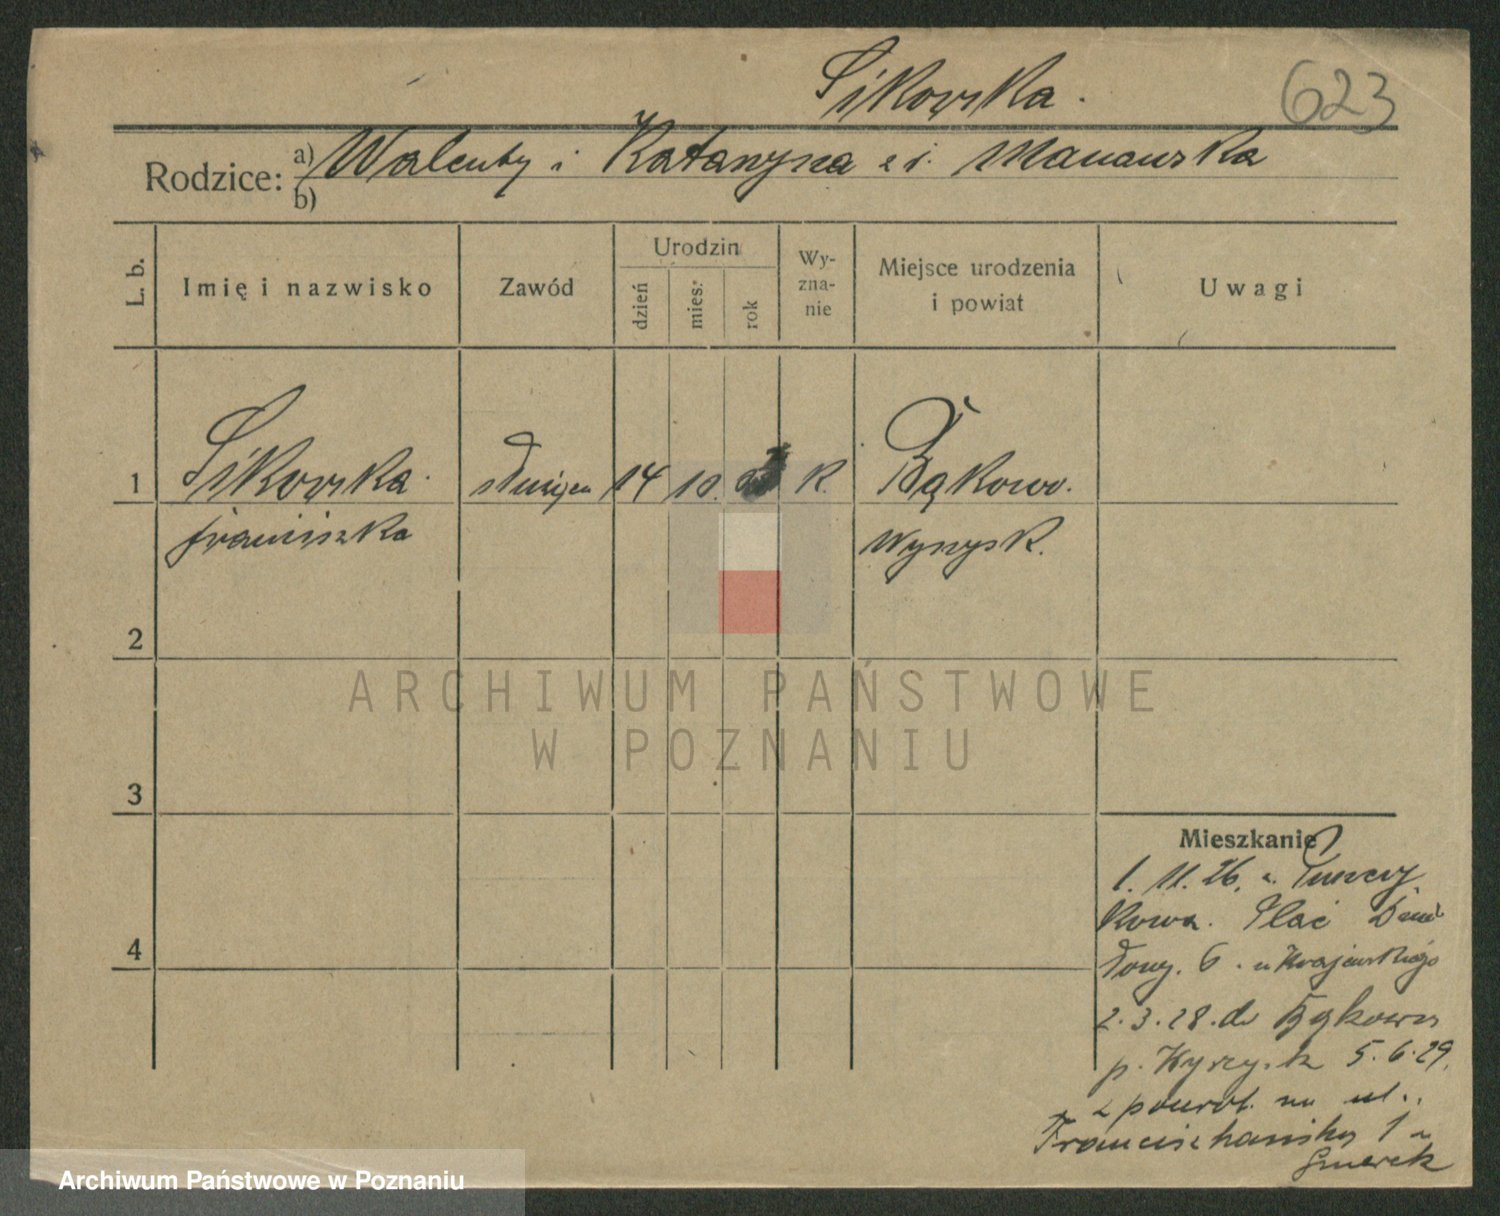 Sikorska.
623
Rodzice: a) Walenty i Katarzyna z d.
b)
L. b.
Imię i nazwisko
Zawód
Urodzin
dzień
mies.
rok
Wy-
zna-
nie
Miejsce urodzenia
i powiat
Uwagi
1
Sikorska
Franciszka
służąca
14
10.
K.
Bąkowo.
Wyrzysk.
2
3
4
Mieszkanie
1. 11. 26. z
kowa. Plac
6. u Krajewskiego
2. 3. 28. do Bąkowa
p. Wyrzysk 5. 6. 29.
z powrot. na ul.
Franciszkańską 1 u
ARCHIWUM PAŃSTWOWE
W POZNANIU
Archiwum Państwowe w Poznaniu